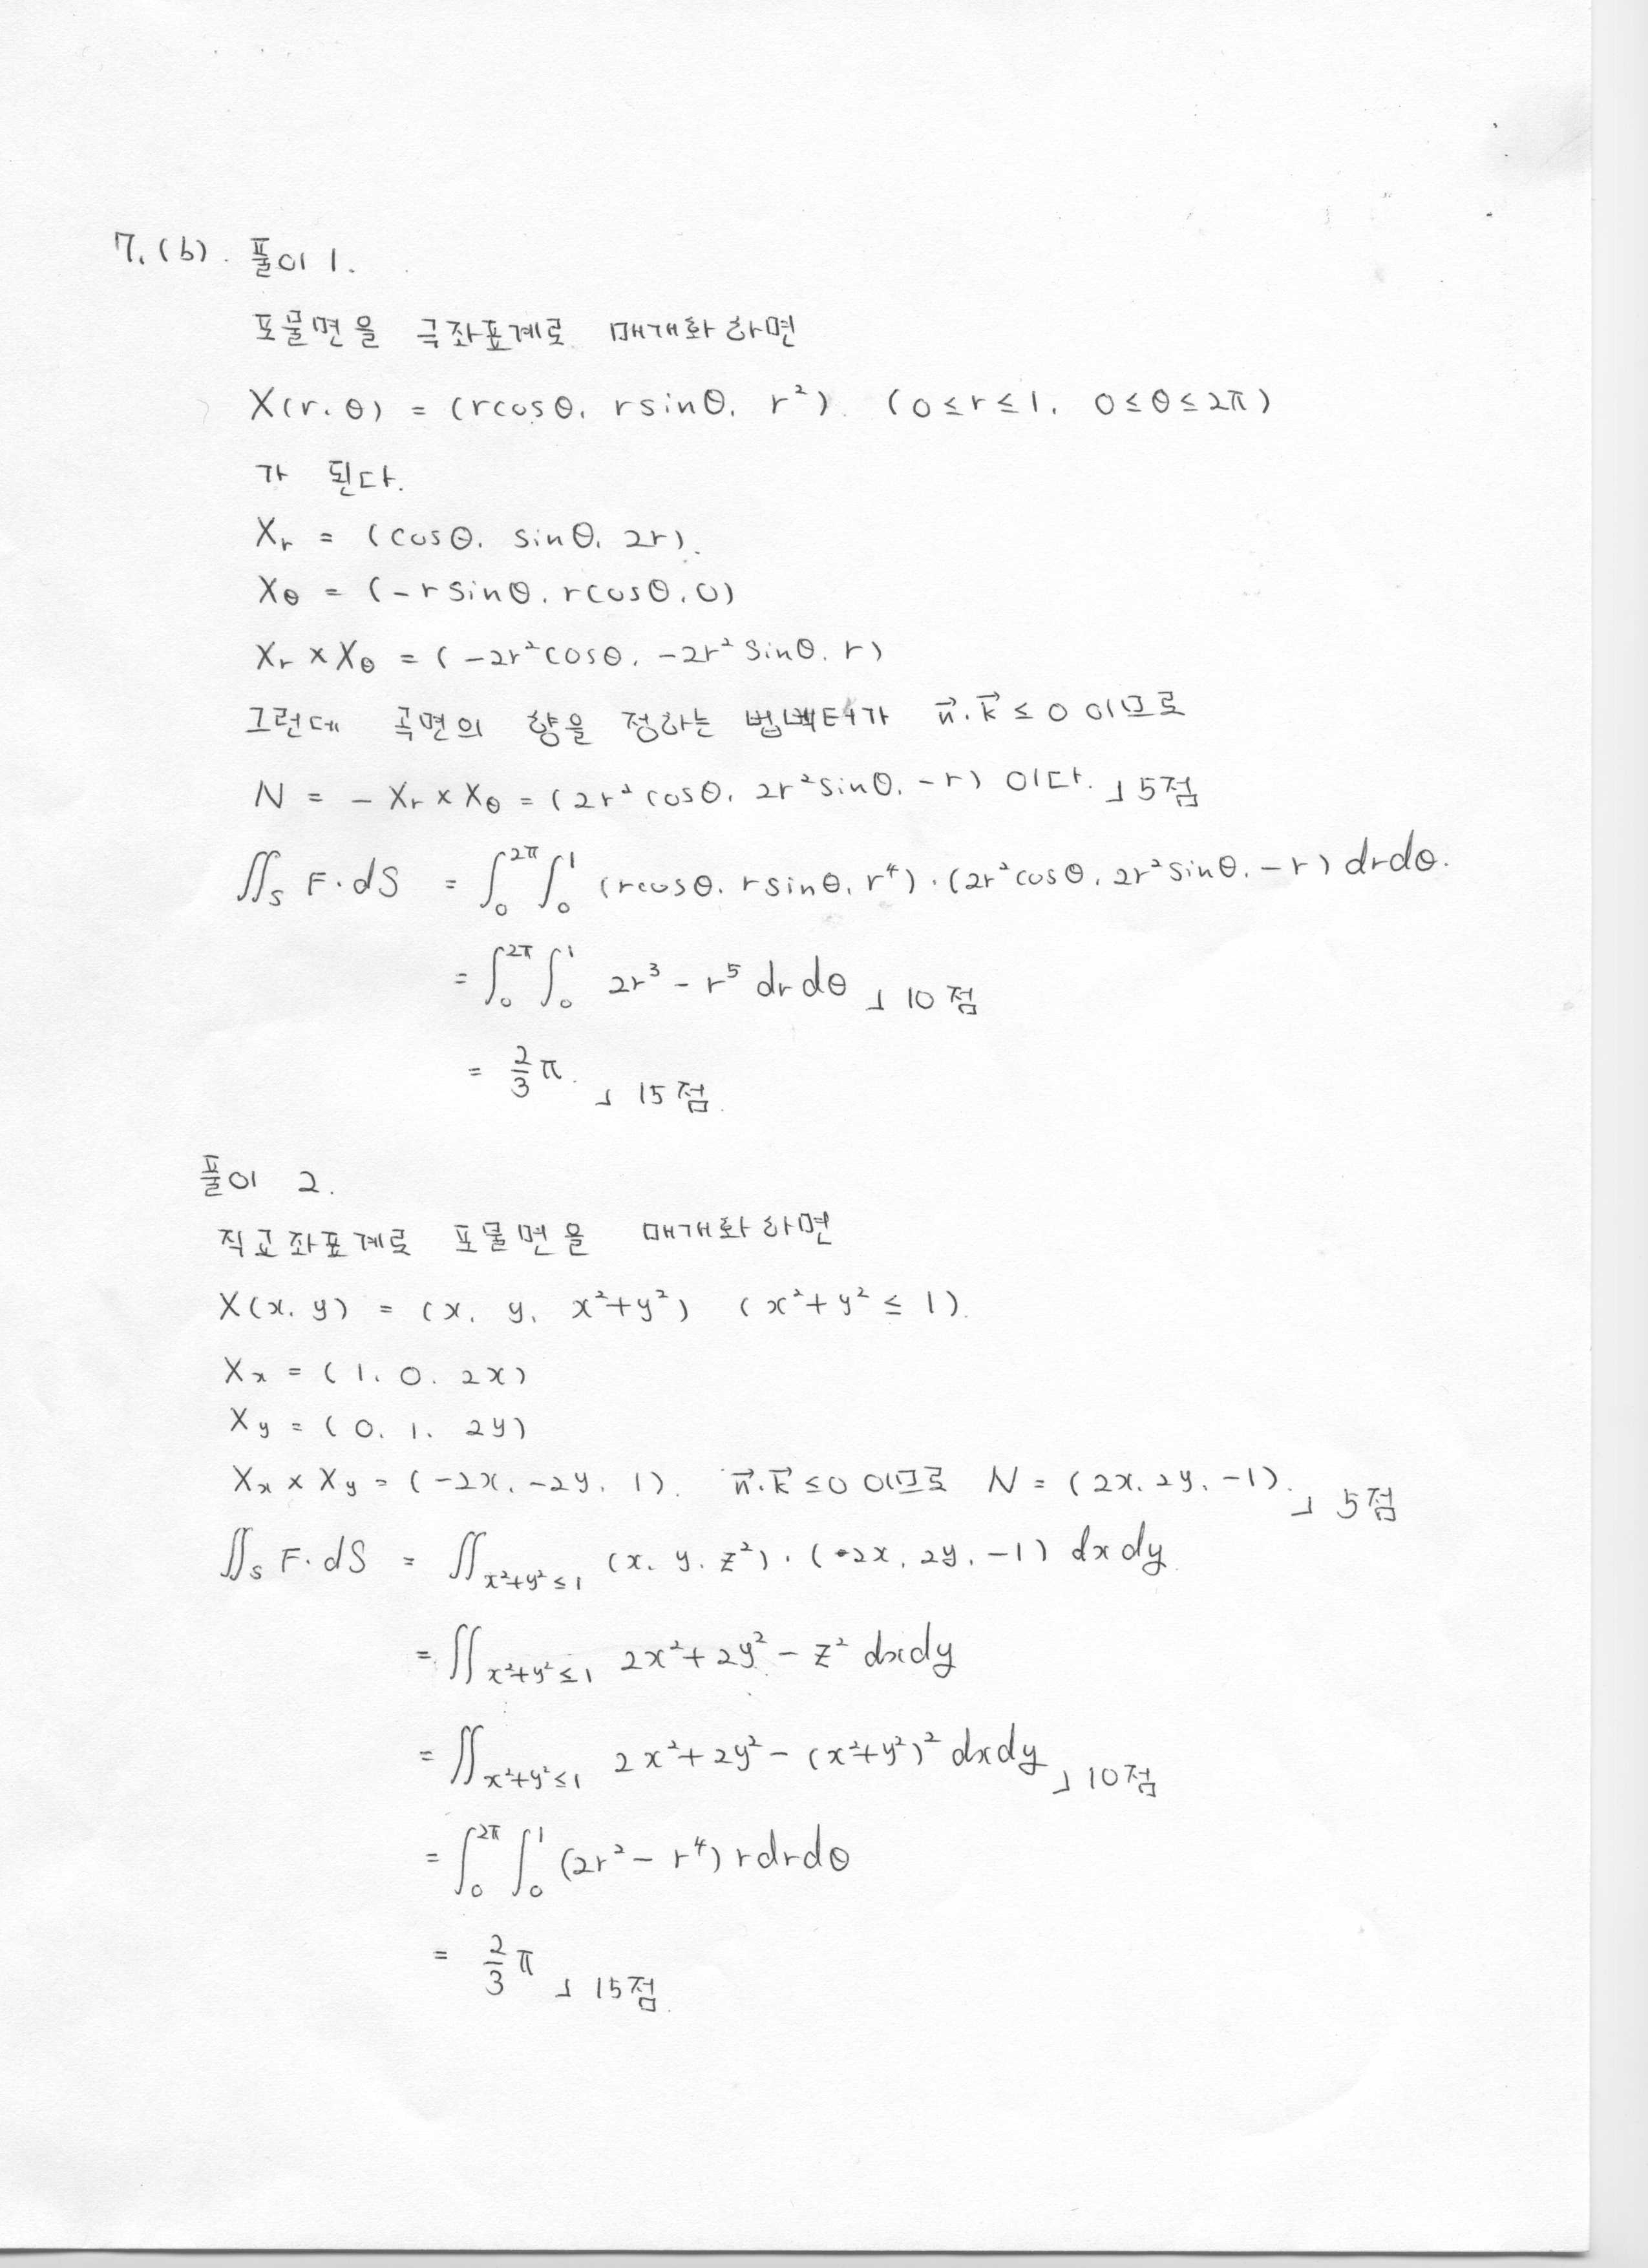 7. (b). 풀이 1.
포물면을 극좌표계로 매개화하면
X(r, θ) = (rcosθ, rsinθ, r²). (0≤r≤1, 0≤θ≤2π)
가 된다.
X_r = (cosθ, sinθ, 2r).
X_θ = (-rsinθ, rcosθ, 0)
X_r × X_θ = (-2r²cosθ, -2r²sinθ, r)
그런데 곡면의 향을 정하는 법벡터가 n⃗·k⃗ ≤ 0 이므로
N = - X_r × X_θ = (2r²cosθ, 2r²sinθ, -r) 이다. 」5점
∬_S F·dS = ∫_0^{2π} ∫_0^1 (rcosθ, rsinθ, r⁴)·(2r²cosθ, 2r²sinθ, -r) drdθ.
= ∫_0^{2π} ∫_0^1 2r³ - r⁵ drdθ 」10점
= 2/3 π. 」15점.
풀이 2.
직교좌표계로 포물면을 매개화하면
X(x, y) = (x, y, x²+y²) (x²+y² ≤ 1).
X_x = (1, 0, 2x)
X_y = (0, 1, 2y)
X_x × X_y = (-2x, -2y, 1). n⃗·k⃗ ≤0 이므로 N = (2x, 2y, -1). 」5점
∬_S F·dS = ∬_{x²+y²≤1} (x, y, z²)·(2x, 2y, -1) dxdy.
= ∬_{x²+y²≤1} 2x²+2y² - z² dxdy
= ∬_{x²+y²≤1} 2x²+2y² - (x²+y²)² dxdy 」10점
= ∫_0^{2π} ∫_0^1 (2r² - r⁴) rdrdθ
= 2/3 π 」15점.